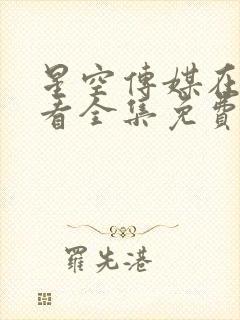 星空傳媒在
看全集免費
羅先港